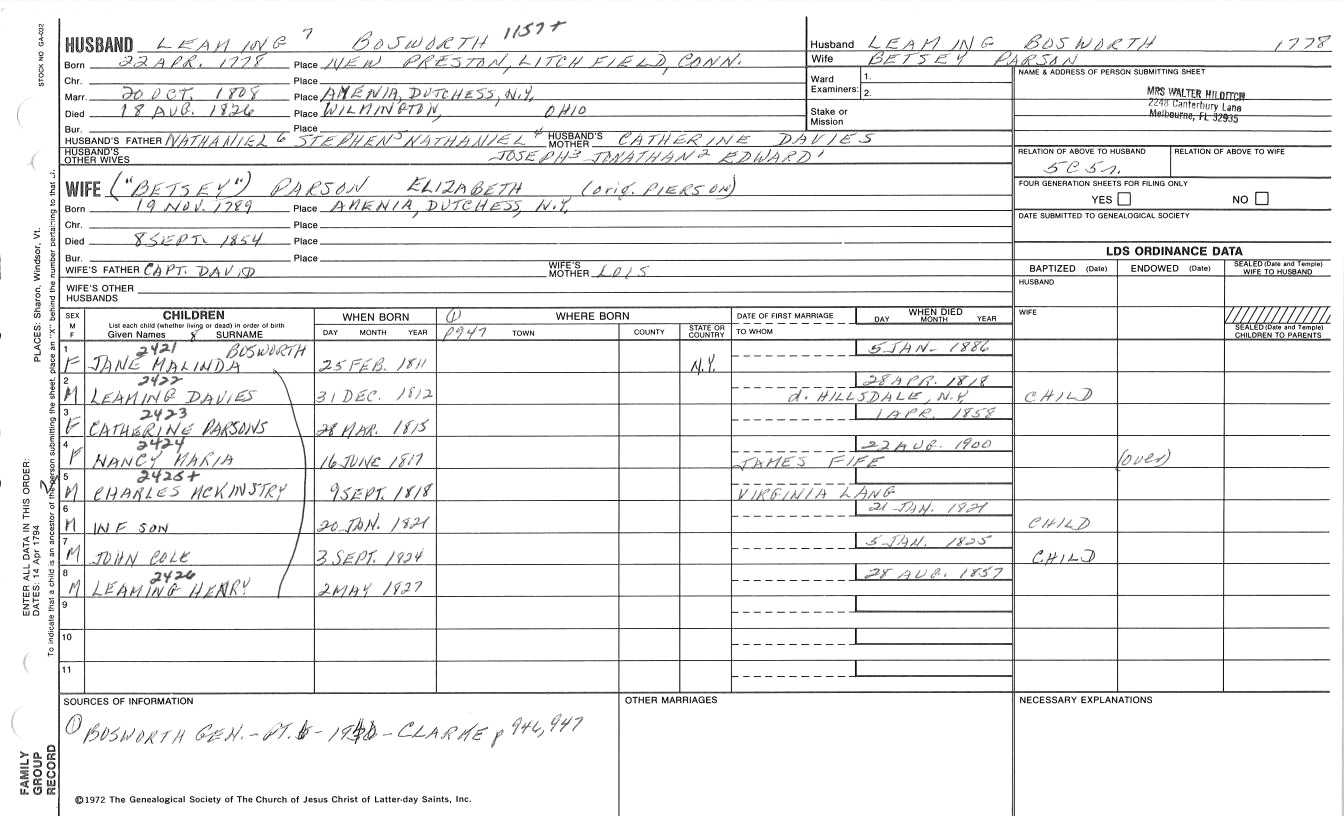 STOCK NO GA-022
HUSBAND LEAMING 7 BOSWORTH 1157+
Born 22 APR. 1778 Place NEW PRESTON, LITCHFIELD, CONN.
Chr. Place
Marr. 20 OCT. 1808 Place AMENIA, DUTCHESS, N.Y.
Died 18 AUG. 1826 Place WILMINGTON, OHIO
Bur. Place
HUSBAND'S FATHER NATHANIEL 6 STEPHEN 5 NATHANIEL 4 HUSBAND'S MOTHER CATHERINE DAVIES
HUSBAND'S OTHER WIVES JOSEPH 3 JONATHAN 2 EDWARD 1
WIFE ("BETSEY") PARSON ELIZABETH (orig. PIERSON)
Born 19 NOV. 1789 Place AMENIA, DUTCHESS, N.Y.
Chr. Place
Died 8 SEPT. 1854 Place
Bur. Place
WIFE'S FATHER CAPT. DAVID WIFE'S MOTHER LOIS
WIFE'S OTHER HUSBANDS
Husband LEAMING BOSWORTH 1778
Wife BETSEY PARSON
Ward Examiners: 1.
2.
Stake or Mission
NAME & ADDRESS OF PERSON SUBMITTING SHEET
MRS WALTER HILDITCH
2248 Canterbury Lane
Melbourne, FL 32935
RELATION OF ABOVE TO HUSBAND RELATION OF ABOVE TO WIFE
5C5r.
FOUR GENERATION SHEETS FOR FILING ONLY
YES NO
DATE SUBMITTED TO GENEALOGICAL SOCIETY
LDS ORDINANCE DATA
BAPTIZED (Date) ENDOWED (Date) SEALED (Date and Temple) WIFE TO HUSBAND
HUSBAND
WIFE
SEALED (Date and Temple) CHILDREN TO PARENTS
SEX M F CHILDREN WHEN BORN (1) WHERE BORN DATE OF FIRST MARRIAGE WHEN DIED
List each child (whether living or dead) in order of birth
Given Names 8 SURNAME DAY MONTH YEAR P947 TOWN COUNTY STATE OR COUNTRY TO WHOM DAY MONTH YEAR
1 2421 BOSWORTH 5 JAN. 1886
F JANE MALINDA 25 FEB. 1811 N.Y.
2 2422 28 APR. 1818
M LEAMING DAVIES 31 DEC. 1812 d. HILLSDALE, N.Y CHILD
3 2423 1 APR. 1858
F CATHERINE PARSONS 28 MAR. 1815
4 2424 22 AUG. 1900
F NANCY MARIA 16 JUNE 1817 JAMES FIFE (over)
5 2425+
M CHARLES MCKINSTRY 9 SEPT. 1818 VIRGINIA LANG
6 21 JAN. 1821
M INF SON 20 JAN. 1821 CHILD
7 5 JAN. 1825
M JOHN COLE 3 SEPT. 1824 CHILD
8 2426 28 AUG. 1857
M LEAMING HENRY 2 MAY 1827
9
10
11
SOURCES OF INFORMATION OTHER MARRIAGES NECESSARY EXPLANATIONS
(1) BOSWORTH GEN. - PT. - CLARKE p 946, 947
©1972 The Genealogical Society of The Church of Jesus Christ of Latter-day Saints, Inc.
FAMILY GROUP RECORD
ENTER ALL DATA IN THIS ORDER:
DATES: 14 Apr 1794
PLACES: Sharon, Windsor, Vt.
To indicate that a child is an ancestor of the person submitting the sheet, place an "X" behind the number pertaining to that